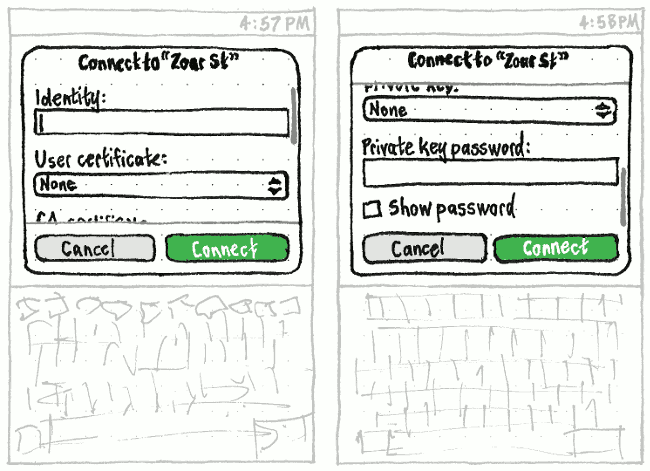 4:57 PM
Connect to "Zoar St"
Identity:
User certificate:
None
CA certificate
Cancel
Connect
4:58PM
Connect to "Zoar St"
Private key:
None
Private key password:
Show password
Cancel
Connect